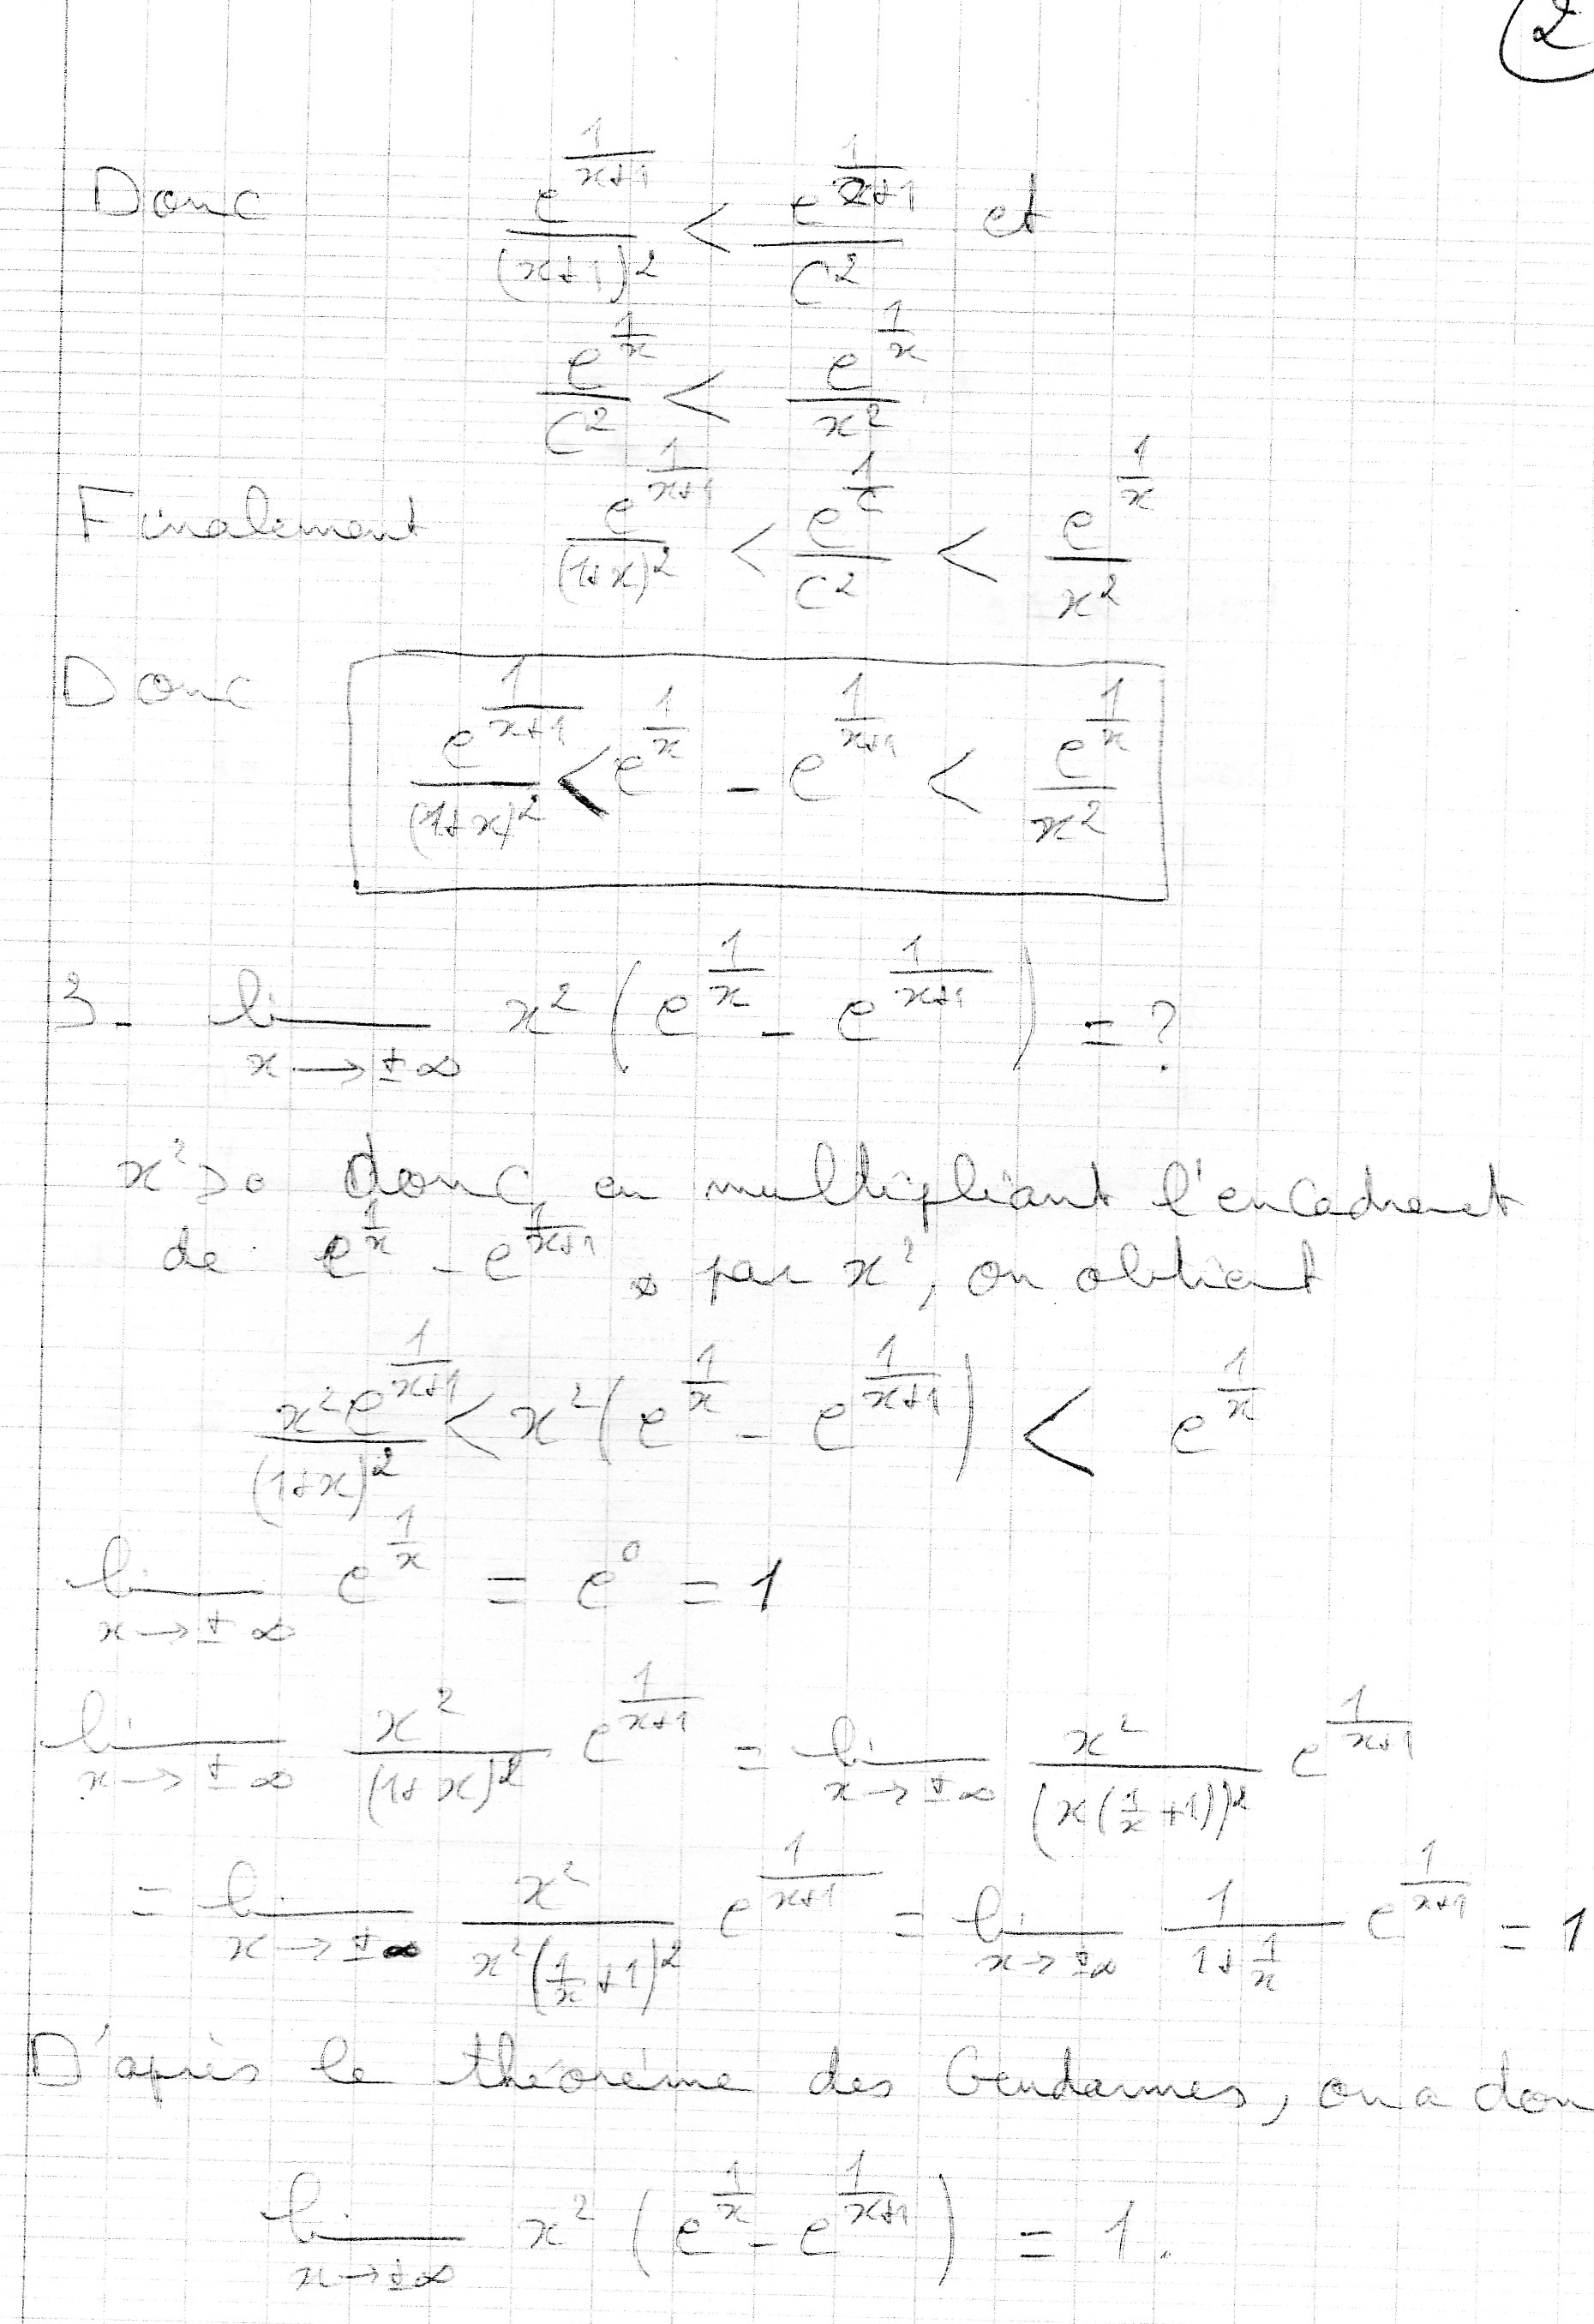 2
Donc e^{1/(x+1)}/(x+1)² < e^{1/(x+1)}/c² et
e^{1/x}/c² < e^{1/x}/x²
Finalement e^{1/(x+1)}/(1+x)² < e^{1/c}/c² < e^{1/x}/x²
Donc e^{1/(x+1)}/(1+x)² < e^{1/x} - e^{1/(x+1)} < e^{1/x}/x²
3- lim_{x→±∞} x² (e^{1/x} - e^{1/(x+1)}) = ?
x²>0 donc, en multipliant l'encadrement
de e^{1/x} - e^{1/(x+1)} par x², on obtient
x²e^{1/(x+1)}/(1+x)² < x²(e^{1/x} - e^{1/(x+1)}) < e^{1/x}
lim_{x→±∞} e^{1/x} = e⁰ = 1
lim_{x→±∞} x²/(1+x)² e^{1/(x+1)} = lim_{x→±∞} x²/(x(1/x+1))² e^{1/(x+1)}
= lim_{x→±∞} x²/(x²(1/x+1)²) e^{1/(x+1)} = lim_{x→±∞} 1/(1+1/x) e^{1/(x+1)} = 1
D'après le théorème des Gendarmes, on a don
lim_{x→±∞} x² (e^{1/x} - e^{1/(x+1)}) = 1.